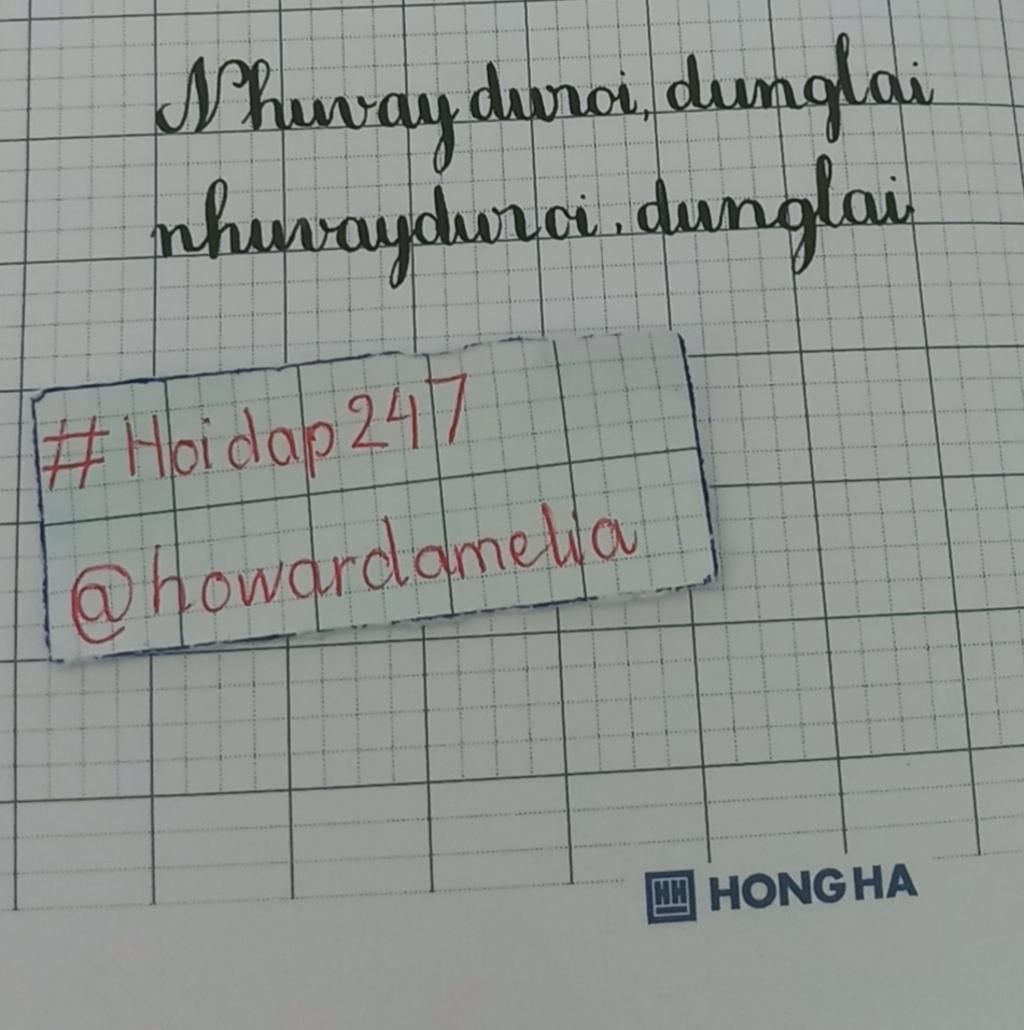 Nhuvay duroi, dunglai
nhuvayduroi. dunglai
#Hoidap247
@howardamelia
HH HONG HA